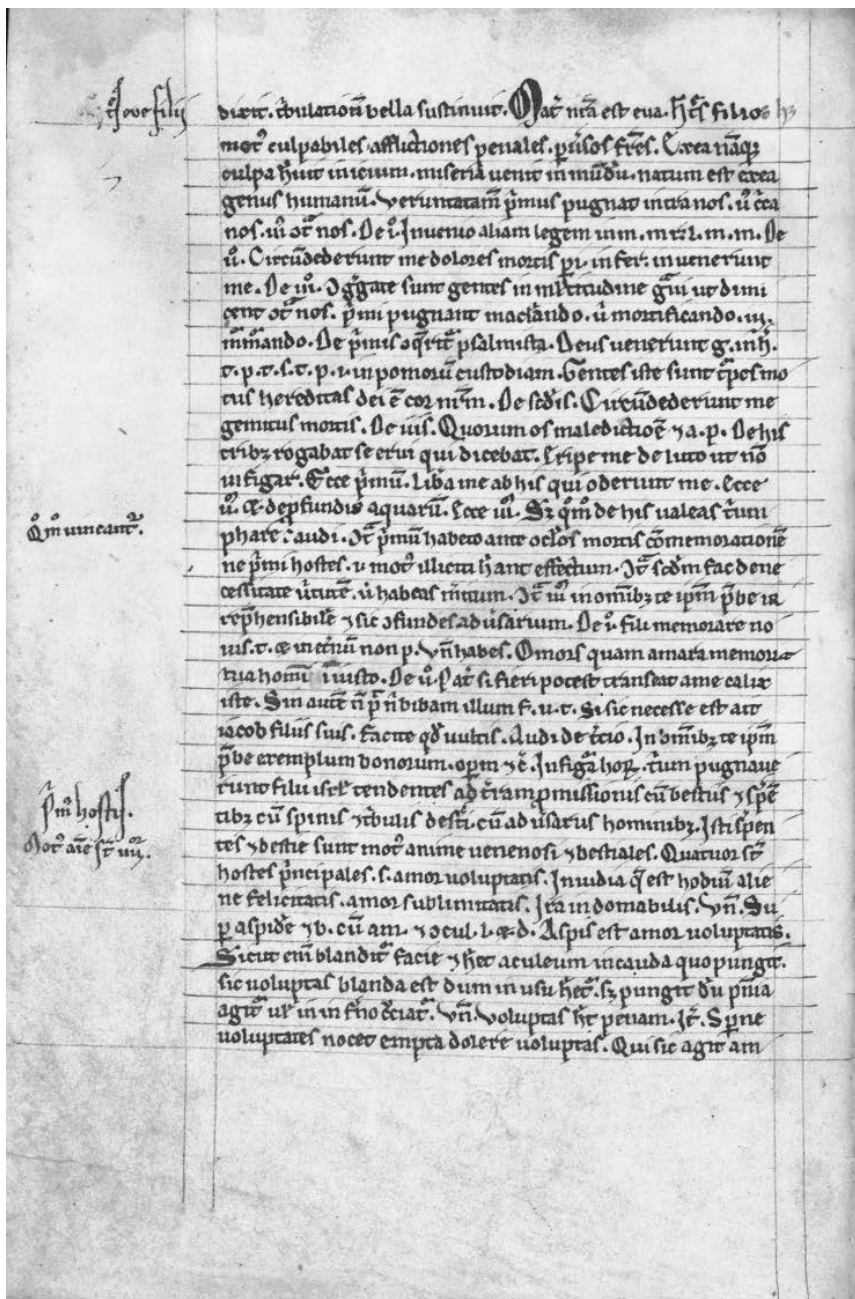 eve filii
dixit. tribulationū bella sustinuit. Mat̄ nr̄a est eua. filios
mot᷒ culpabiles. afflictiones penales. ꝑuisos fr̄es. Ex ea nāqꝫ
culpa inicium. miseria uenit in mūdū. natum est ex ea
genus humanū. Veruntatam̄ p̓mus pugnat intra nos.
nos. iii᷒ ↄt̓ nos. De i᷒. Inuenio aliam legem in m. m. De
ii᷒. Circūdederunt me dolores mortis inuenerunt
me. De iii᷒. gate sunt gentes in ml̄titudine ut dimi
cent ↄt̓ nos. p̓mi pugnant maclando. ii᷒ mortificando. iii᷒
De p̓mis psalmista. Deus uenerunt g. in h̓.
t. p. t. s. t. p. i. in pomorū custodiam. Gentes iste sunt mo
tus hereditas dei ē cor nr̄m. De scd̓is. Circūdederunt me
gemitus mortis. De iiis. Quorum os maledictiōe ⁊ a. p. De his
tribꝫ rogabat se erui qui dicebat. Eripe me de luto ut nō
infigar. Ecce p̓mū. Lib̓a me ab his qui oderunt me. Ecce
ii᷒. ⁊ de ꝓfundis aquarū. Ecce iii᷒. Sꝫ qm̄ de his ualeas t̓um
Qm̄ uincant̓.
phare audi. It̓ p̓mū habeto ante oc̄los mortis cōmemorationē
ne p̓mi hostes. i. mot᷒ illiciti h̓ant effectum. It̓ scd̄m fac de ne
cessitate u̓tutē. ii᷒ habeas m̓itum. It̓ iii᷒ in om̄ibꝫ te ip̄m p̄be ir
rep̄hensibilē ⁊ sic ↄfundes adu̓sarium. De i᷒. fili memorare no
uis. t. ⁊ in et̓nū non p. Vn̄ habes. O mors quam amara memoria
tua homī iniusto. De ii᷒. Pat̓ si fieri potest transeat a me calix
iste. Sin aut̄ bibam illum f. u. t. Si sic necesse est ait
iacob filiis suis. facite qd̄ uultis. Audi de t̓cio. In om̄ibꝫ te ip̄m
p̄be exemplum bonorum. opum ⁊c̄. In figura horꝫ. pugnaue
runt filii isrl̄ tendentes ad t̓ram ꝓmissionis cū bestiis ⁊ sp̄en
p̓mi hostes.
tibꝫ cū spinis ⁊ t̓bulis desti. cū adu̓sariis hominibꝫ. Isti sp̄en
Mot᷒ aīe st̄ iiii.
tes ⁊ bestie sunt mot᷒ anime uenenosi ⁊ bestiales. Quatuor st̄
hostes p̓ncipales. s. amor uoluptatis. Inuidia q̄ est hodium alie
ne felicitatis. amor sublimitatis. Ira indomabilis. Vn̄. Su
ꝑ aspidē ⁊ b. cū am. ⁊ ↄcul. l. ⁊ d. Aspis est amor uoluptatis.
Sicut eīm blandit̓ facie ⁊ h̓et aculeum in cauda quo pungit.
sic uoluptas blanda est dum in usu h̓et̓. sꝫ pungit dū pn̄ia
agit̓ ul̓ in in f̓no c̓ciat̓. Vn̄. Voluptas h̓t penam. It̓. Sꝑne
uoluptates nocet empta dolore uoluptas. Qui sic agit am